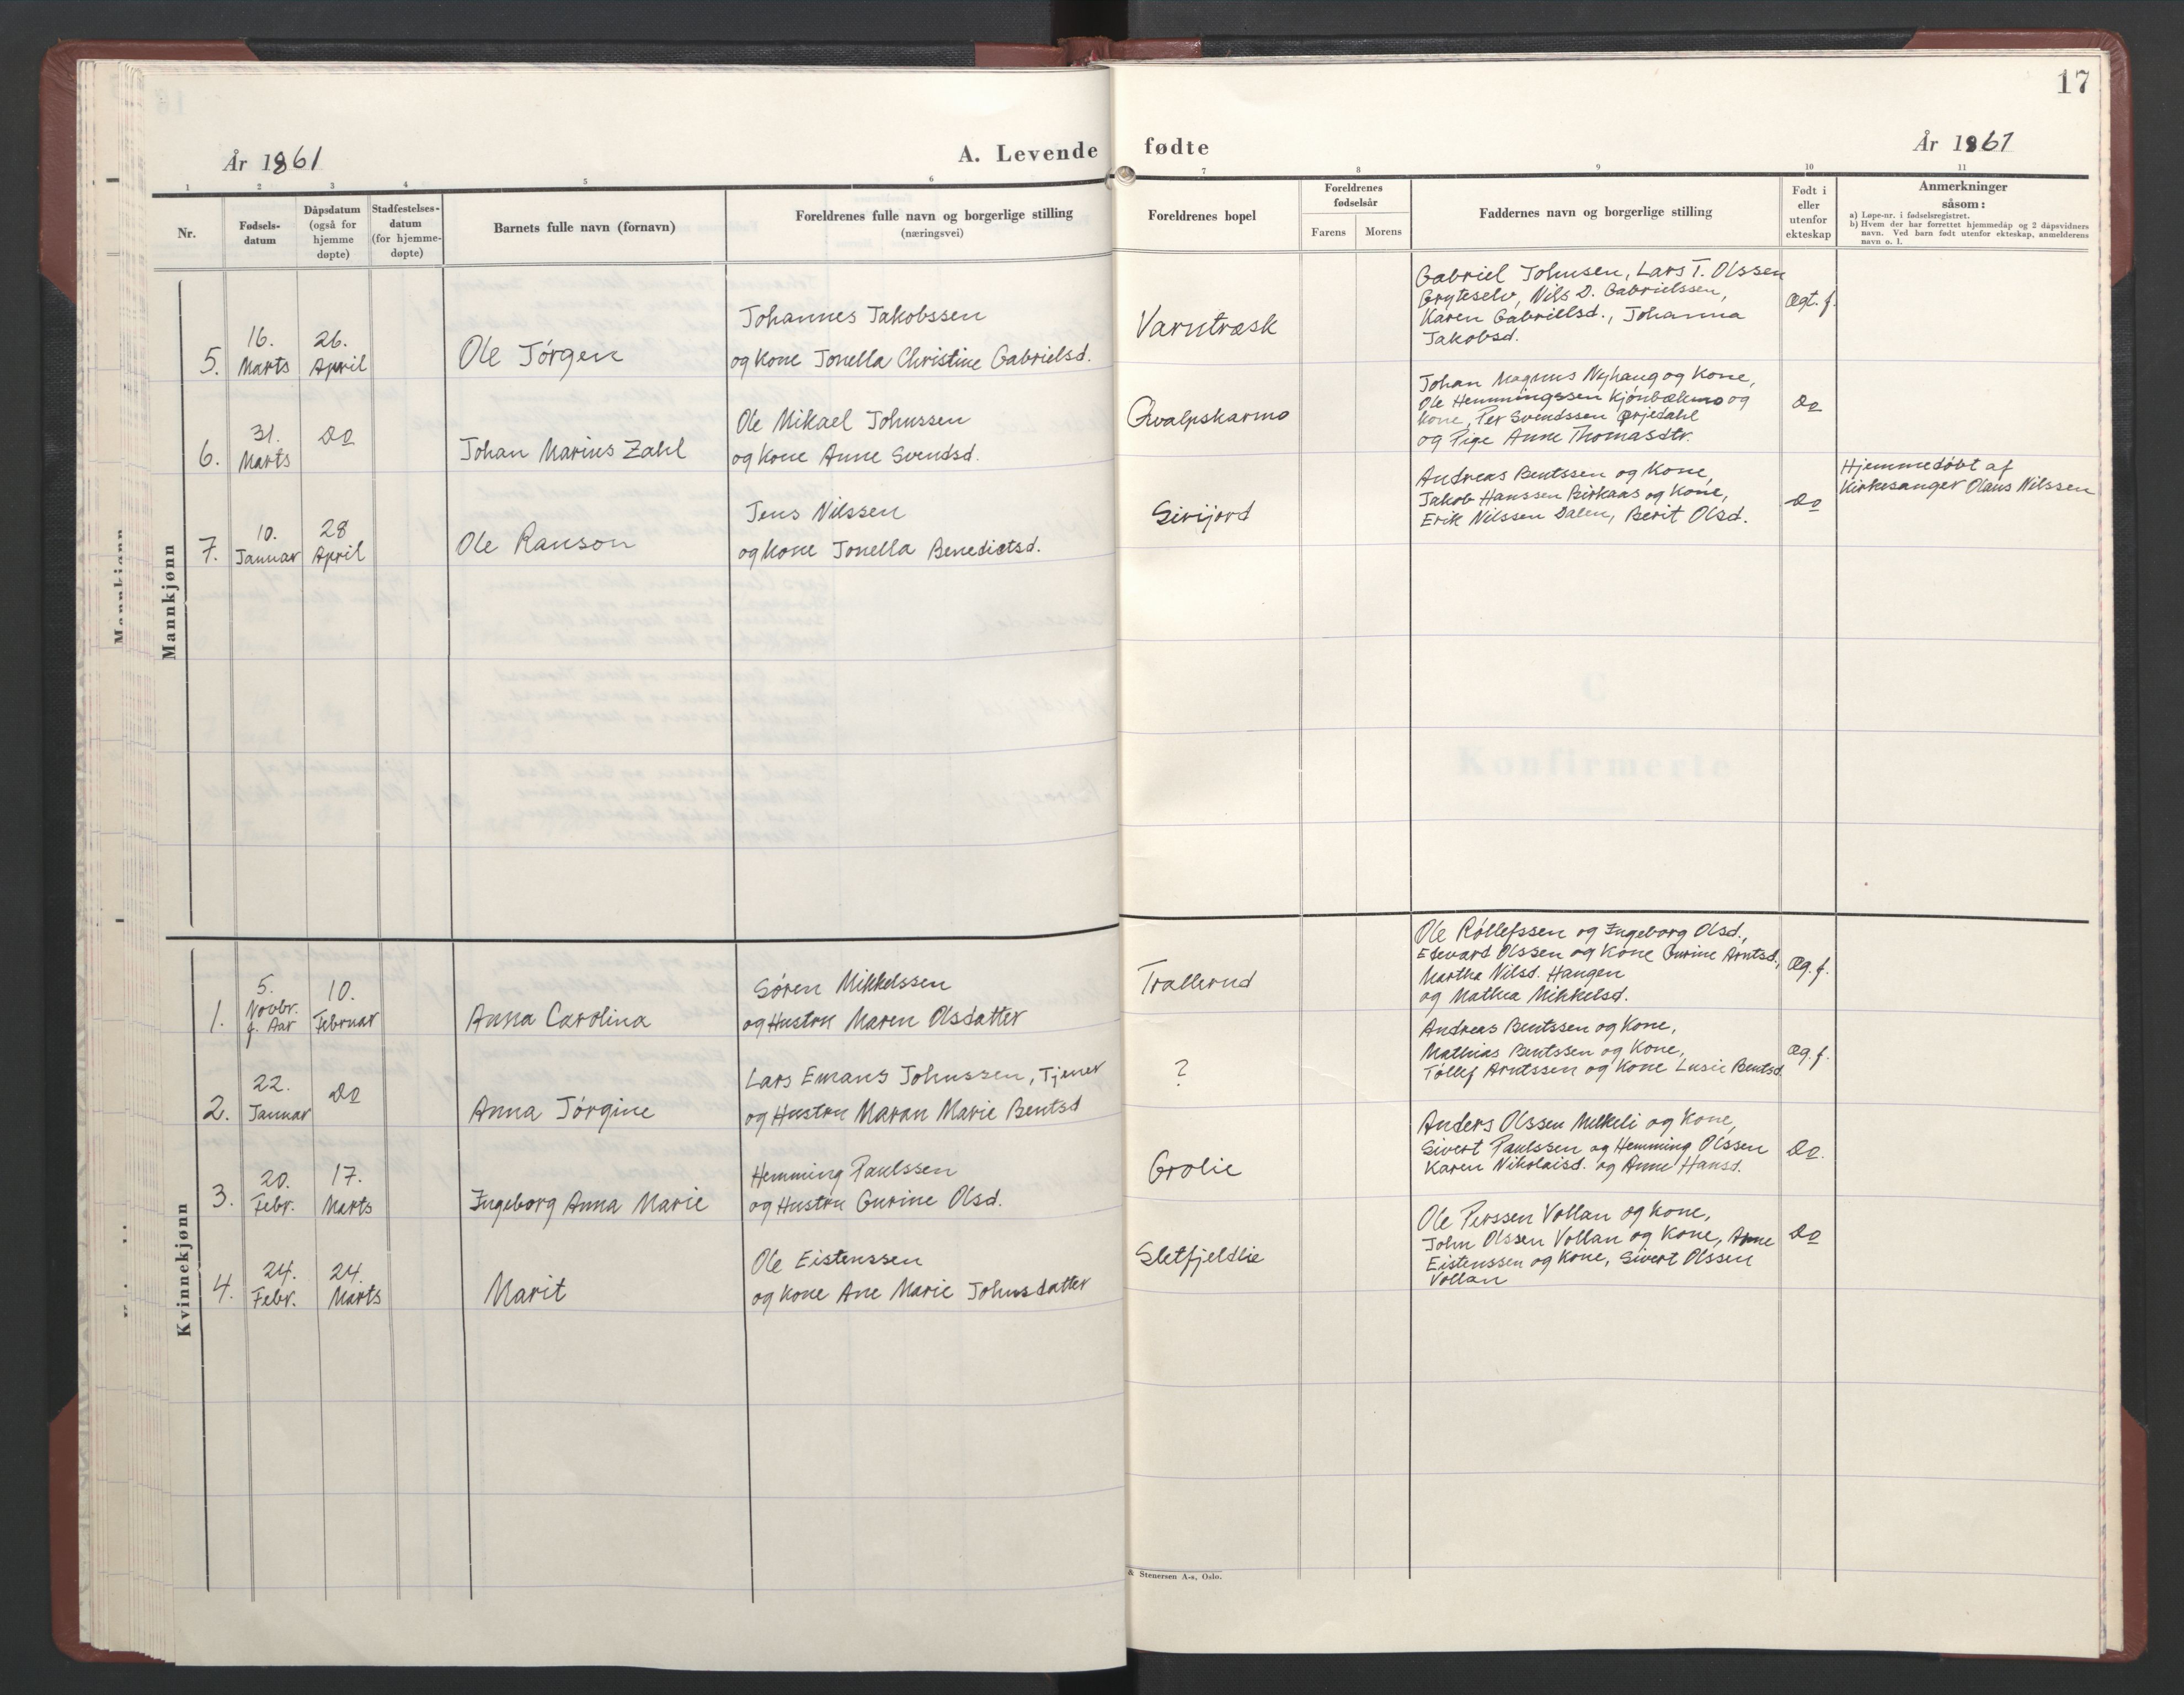 17
År 1861
A. Levende fødte
År 1861
1 2 3 4 5 6 7 8 9 10 11
Nr.
Fødsels-
datum
Dåpsdatum
(også for
hjemme
døpte)
Stadfestelses-
datum
(for hjemme-
døpte)
Barnets fulle navn (fornavn)
Foreldrenes fulle navn og borgerlige stilling
(næringsvei)
Foreldrenes bopel
Foreldrenes
fødselsår
Farens Morens
Faddernes navn og borgerlige stilling
Født i
eller
utenfor
ekteskap
Anmerkninger
såsom:
a) Løpe-nr. i fødselsregistret.
b) Hvem der har forrettet hjemmedåp og 2 dåpsvidners
navn. Ved barn født utenfor ekteskap, anmelderens
navn o. l.
Mannkjønn
5.
16.
Marts
26.
April
Ole Jörgen
Johannes Jakobssen
og Kone Jonella Christine Gabrielsd.
Varntræsk
Gabriel Johnsen, Lars T. Olssen
Gryteselv, Nils D. Gabrielssen,
Karen Gabrielsd., Johanna
Jakobsd.
Ægt. f.
6.
31.
Marts
Do
Johan Marius Zahl
Ole Mikael Johnssen
og Kone Anne Svendsd.
Qvalpskarmo
Johan Magnus Nyhaug og Kone,
Ole Hemmingssen Kjönbækmo og
Kone, Per Svendssen Ørjedahl
og Pige Anne Thomasdtr.
Do
7.
10.
Januar
28
April
Ole Ranson
Jens Nilssen
og Kone Jonella Benedictsd.
Sirijord
Andreas Bentssen og Kone,
Jakob Hanssen Birkaas og Kone,
Erik Nilssen Dalen, Berit Olsd.
Do
Hjemmedöbt af
Kirkesanger Olaus Nilssen
Kvinnekjønn
1.
5.
Novbr.
f. Aar
10.
Februar
Anna Carolina
Sören Mikkelssen
og Hustru Maren Olsdatter
Trallerud
Ole Röllefssen og Ingeborg Olsd.,
Edevard Olssen og Kone Gurine Arntsd.,
Martha Nilsd. Haugen
og Mathea Mikkelsd.
Æg. f.
2.
22.
Januar
Do
Anna Jörgine
Lars Emans Johnssen, Tjener
og Hustru Maran Marie Bentsd
?
Andreas Bentssen og Kone,
Mathias Bentssen og Kone,
Töllef Arntssen og Kone Lusie Bentsd.
Æg. f.
3.
20.
Febr.
17.
Marts
Ingeborg Anna Marie
Hemming Paulssen
og Hustru Gurine Olsd.
Grolie
Anders Olssen Melkeli og Kone,
Sivert Paulssen og Hemming Olssen
Karen Nikolaisd. og Anne Hansd.
Do.
4.
24.
Febr.
24.
Marts
Marit
Ole Eistenssen
og Kone Ane Marie Johnsdatter
Sletfjeldlie
Ole Perssen Vollan og Kone,
John Olssen Vollan og Kone, Arne
Eistenssen og Kone, Sivert Olssen
Vollan
Do
& Stenersen A-s, Oslo.